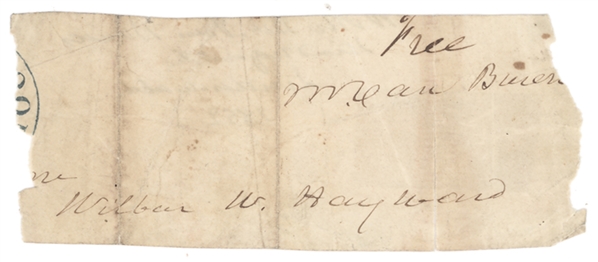 Free
M Van Buren
Wilbur W. Hayward